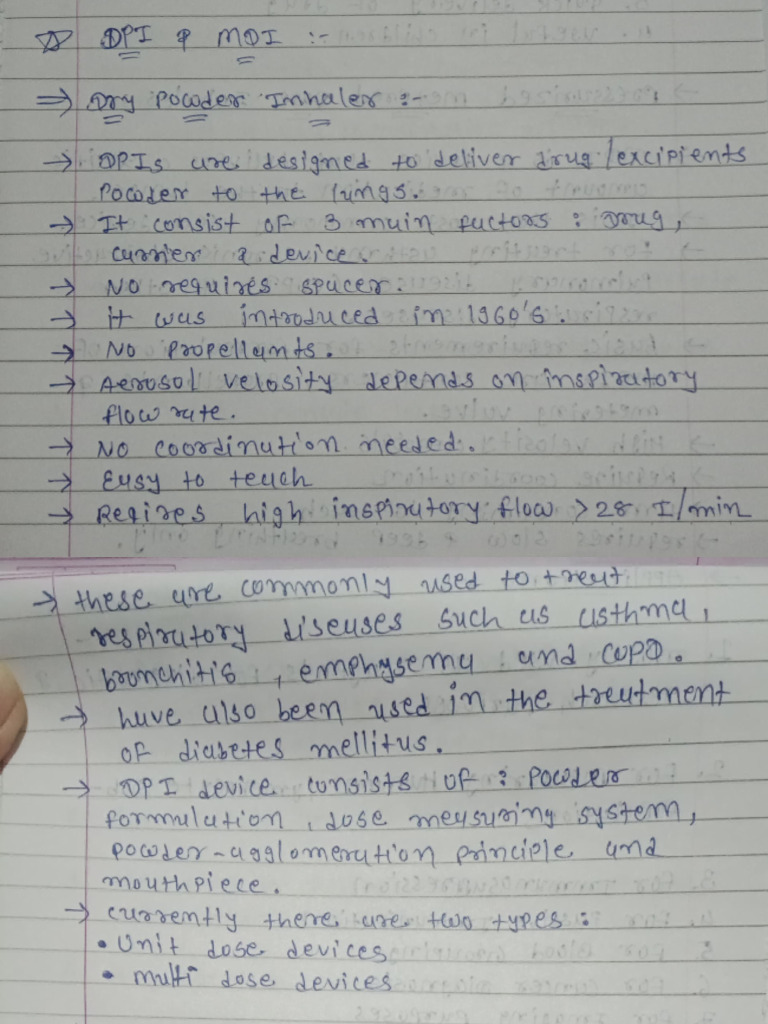 ☆ DPI & MDI :-
⇒ Dry Powder Inhaler :-
→ DPIs are designed to deliver drug/excipients
Powder to the lungs.
→ It consist of 3 main factors : Drug,
carrier & device
→ No requires spacer.
→ it was introduced in 1960's.
→ No Propellants.
→ Aerosol velosity depends on inspiratory
flow rate.
→ No coordination needed.
→ Easy to teach
→ Reqires high inspiratory flow > 28 I/min
→ these are commonly used to treat
respiratory diseases such as asthma,
bronchitis, emphysema and COPD.
→ have also been used in the treatment
of diabetes mellitus.
→ DPI device consists of : Powder
formulation, dose measuring system,
powder-agglomeration principle and
mouthpiece.
→ currently there are two types :
• Unit dose devices
• multi dose devices